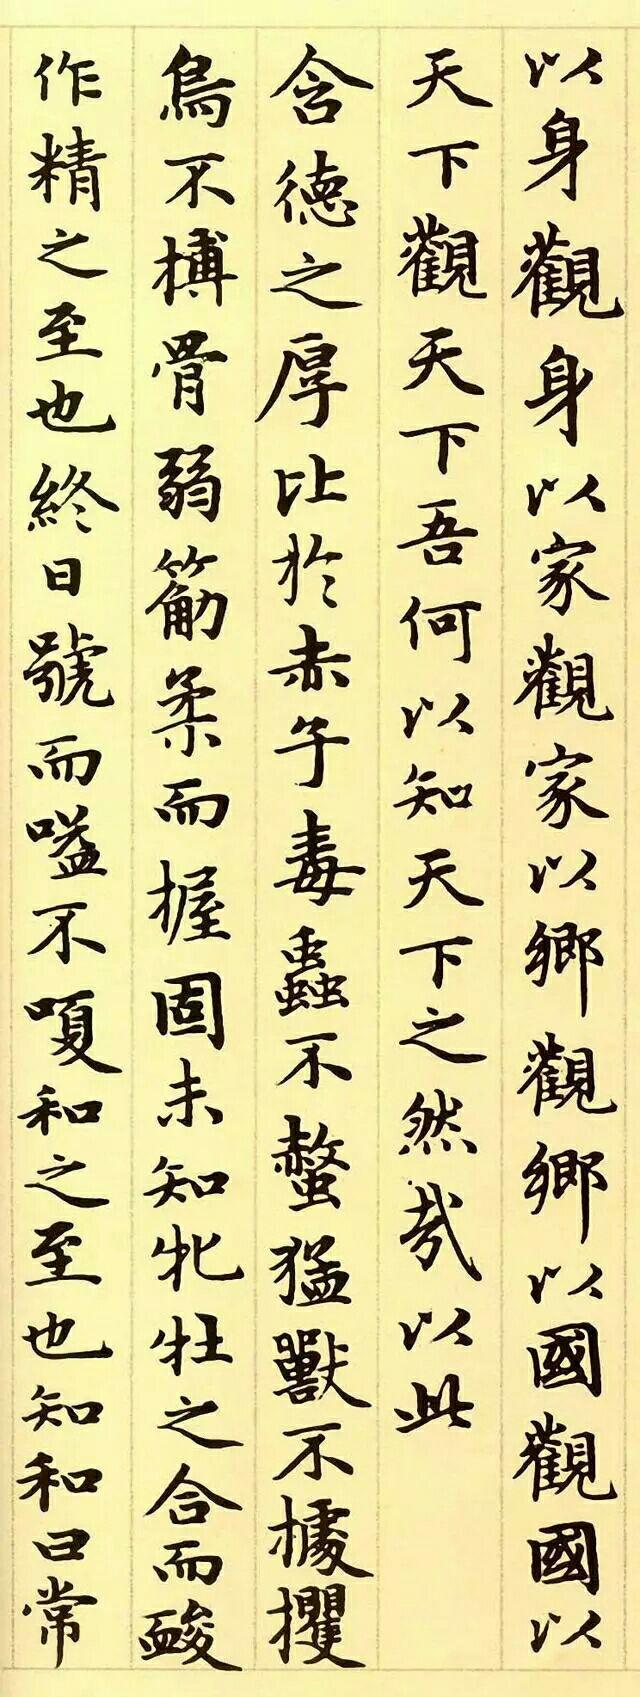 以身觀身以家觀家以鄉觀鄉以國觀國以
天下觀天下吾何以知天下之然㢤以此
含德之厚比於赤子毒蟲不螫猛獸不據攫
鳥不搏骨弱筋柔而握固未知牝牡之合而酸
作精之至也終日號而嗌不嗄和之至也知和曰常